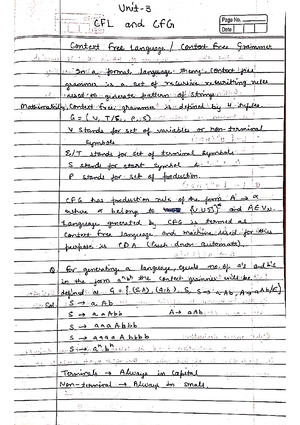 Unit-3
CFL and CFG
Page No.
Date
Context Free Language / Context Free Grammer
In a formal language theory, context free
grammer is a set of recursive rewriting rules
used to generate pattern of strings.
Mathematically, Context free grammer is defined by 4 tuples.
G = (V, T/Σ, P, S)
V stands for set of variables or non-terminal
symbols
Σ/T stands for set of terminal symbols.
S stands for start symbol
P stands for set of production.
CFG has production rule of the form A → α
where α belong to {V∪Σ}* and A∈V
Language generated by CFG is termed as
Context free language and machine used for this
purpose is PDA (Push down automata).
Q. For generating a language, equal no. of a's and b's
in the form aⁿbⁿ the context grammer will be
defined as G = [{S,A}, {a,b}, S, S → aAb, A → aAb/ε]
Sol. S → a Ab
S → a aAbb A → aAb
S → aaa A bbb
S → aaaa A bbbb
S → aⁿ bⁿ
Terminals → Always in Capital
Non-terminal → Always in small.